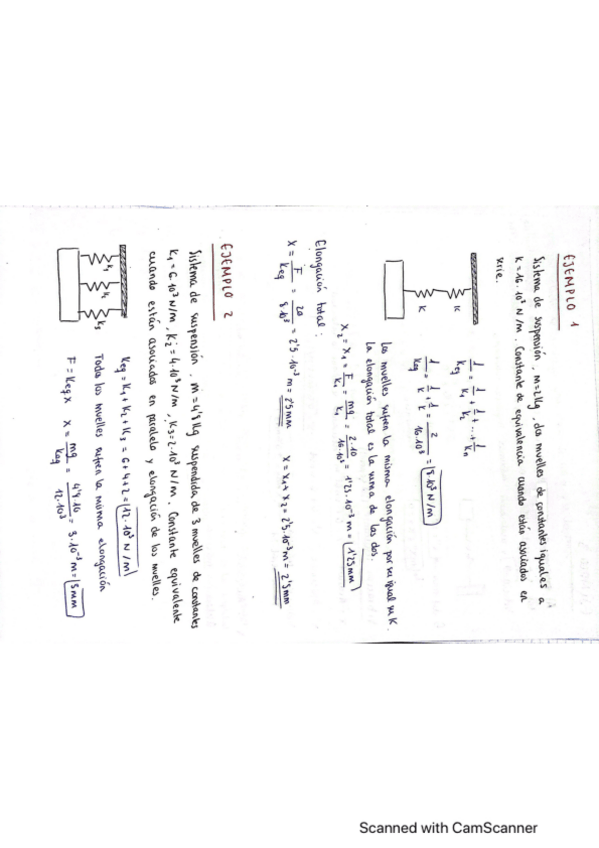 EJEMPLO 1
Sistema de suspensión, m=2Kg, dos muelles de constantes iguales a
K=16·10³ N/m. Constante de equivalencia cuando estás asociados en
serie.
1/Keq = 1/K₁ + 1/K₂ + ... + 1/Kn
1/Keq = 1/K + 1/K = 2/16·10³ = 8·10³ N/m
K K
Los muelles sufren la misma elongación por su igual su K.
La elongación total es la suma de las dos.
X₂ = X₁ = F/K₁ = mg/K₁ = 2·10/16·10³ = 1'25·10⁻³ m = 1'25mm
Elongación total:
X = F/Keq = 20/8·10³ = 2'5·10⁻³ m = 2'5mm X = X₁ + X₂ = 2'5·10⁻³ m = 2'5mm
EJEMPLO 2
Sistema de suspensión. m = 4'5 Kg suspendida de 3 muelles de constantes
K₁ = 6·10³ N/m, K₂ = 4·10³ N/m, K₃ = 2·10³ N/m. Constante equivalente
cuando están asociados en paralelo y elongación de los muelles.
Keq = K₁ + K₂ + K₃ = 6+4+2 = 12·10³ N/m
K₁ K₂ K₃
Todos los muelles sufren la misma elongación
F = Keq X X = mg/Keq = /12·10³ = 3·10⁻³ m =
Scanned with CamScanner